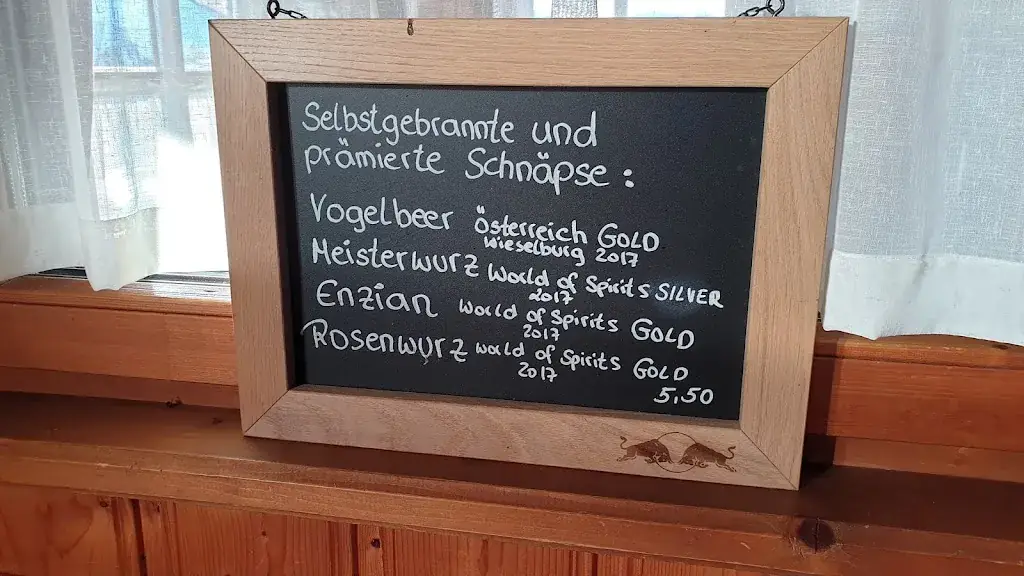 Selbstgebrannte und
prämierte Schnäpse :
Vogelbeer Österreich GOLD
Wieselburg 2017
Meisterwurz World of Spirits SILVER
2017
Enzian World of Spirits GOLD
2017
Rosenwurz World of Spirits GOLD
2017
5,50